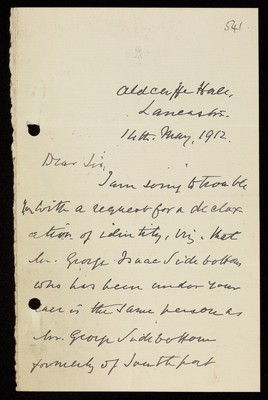 541
Aldcliffe Hall,
Lancaster.
14th. May, 1912.
Dear Sir,
I am sorry to trouble
you with a request for a declar-
ation of identity, viz. that
Mr. George Isaac Sidebottom
who has been under your
care is the same person as
Mr. George Sidebottom
formerly of Southport